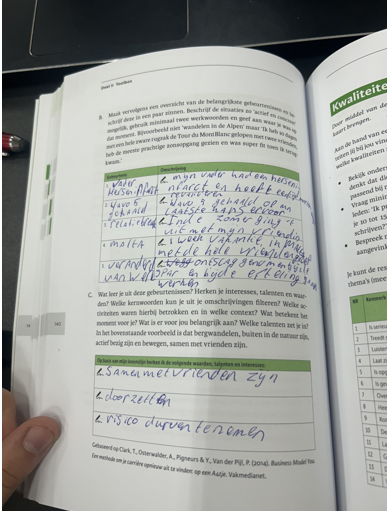 Deel II Toolbox
B. Maak vervolgens een overzicht van de belangrijkste gebeurtenissen en be-
schrijf deze in een paar zinnen. Beschrijf de situaties zo 'actief en
mogelijk, gebruik minimaal twee werkwoorden en geef aan waar je was op
dat moment. Bijvoorbeeld niet 'wandelen in de Alpen' maar 'Ik heb in
met een hele zware rugzak de Tour du Mont Blanc gelopen met twee
heb de meeste prachtige zonsopgang gezien en was super fit toen ik terug-
kwam.'
Gebeurtenis
Omschrijving
vader
mijn vader had een hersen
herseninfarct
infarct en heeft
havo 5
havo 5 gehaald op mn
gehaald
laatste kans ervoor
relatiebreuk
Einde zomer ging ik
uit met mijn vriendin
malta
1 week vakantie in malta
met de hele vriendengroep
ontslag genomen bij de
van werk
Spar en bij de
werken
C. Wat leer je uit deze gebeurtenissen? Herken je interesses, talenten en waar-
den? Welke kernwoorden kun je uit je omschrijvingen filteren? Welke ac-
tiviteiten waren hierbij betrokken en in welke context? Wat betekent het
moment voor je? Wat is er voor jou belangrijk aan? Welke talenten zet je in?
In het bovenstaande voorbeeld is dat bergwandelen, buiten in de natuur zijn,
actief bezig zijn en bewegen, samen met vrienden zijn.
Op basis van mijn levenslijn herken ik de volgende waarden, talenten en interesses:
1. Samen met vrienden zijn
2. doorzetten
3. risico durven te nemen
Gebaseerd op Clark, T., Osterwalder, A., Pigneurs & Y., Van der Pijl, P. (2014). Business Model You.
Een methode om je carrière opnieuw uit te vinden: op een A4tje. Vakmedianet.
142
Kwaliteite
Door middel van de
kaart brengen.
Aan de hand van
teiten jij bij jou vin
welke kwaliteiten
Bekijk onder
denkt dat di
passend bij
Vraag minir
leden: 'Ik p
je 10 tot 1
schrijven?
Bespreek
aangevink
Je kunt de res
thema's (inee
NR
Kenmerk
1
Is serieu
2
3
Luister
4
Laat z
5
Is opg
6
Is ge
7
Over
8
9
10
11
12
13
14